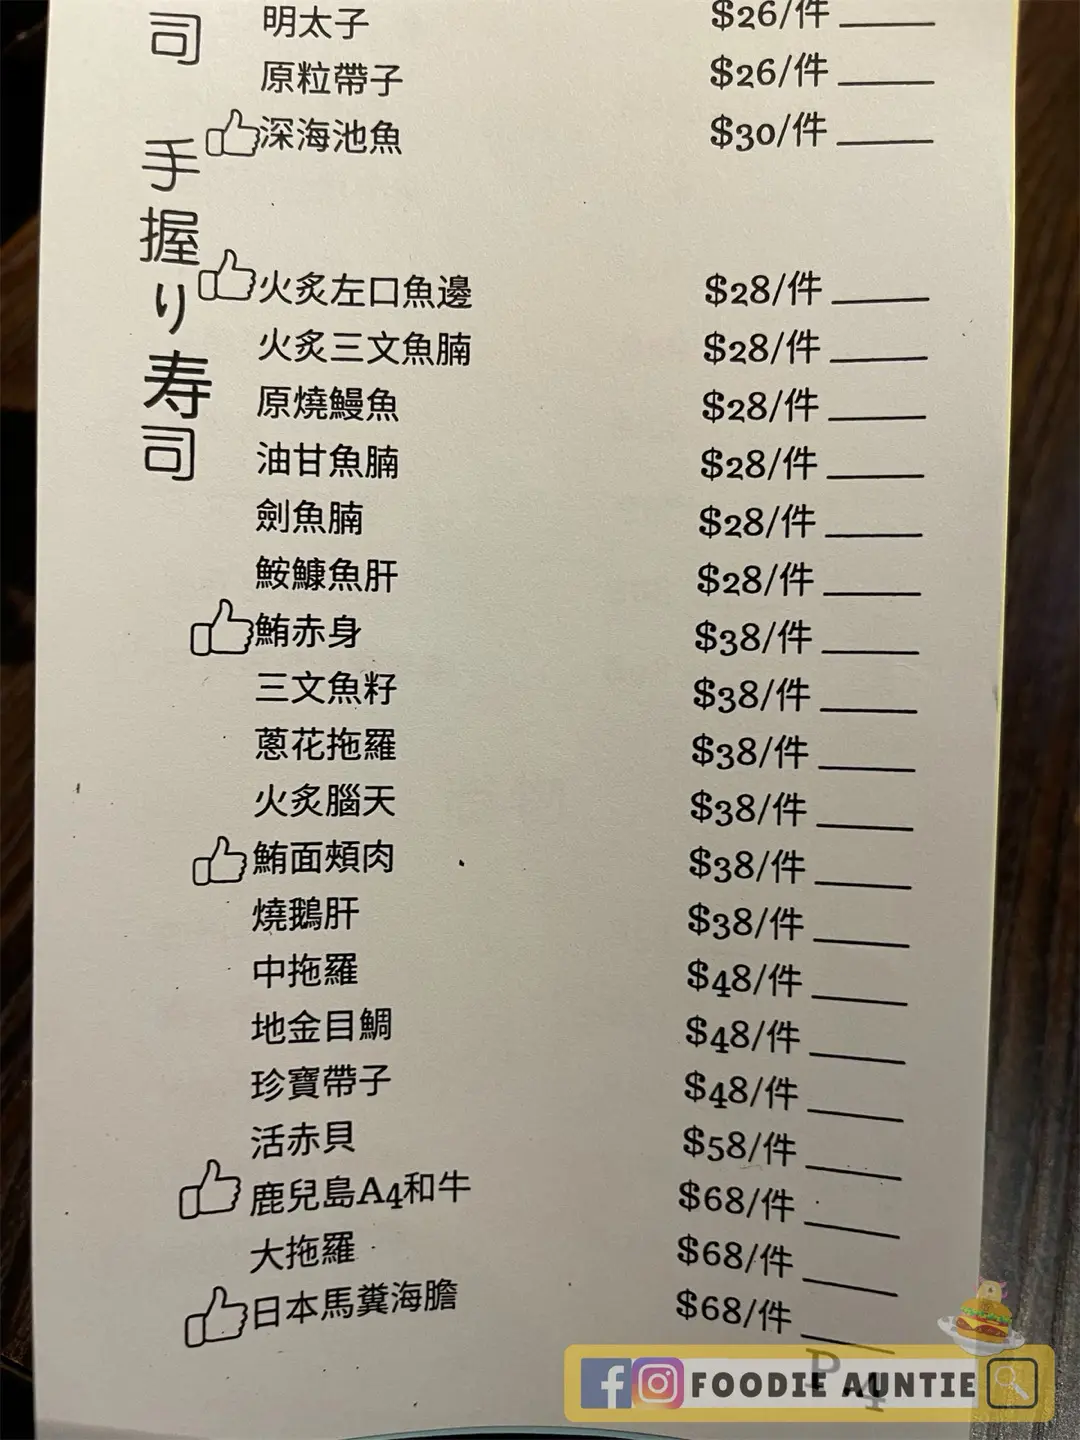 司
手握り寿司
明太子 $26/件
原粒帶子 $26/件
深海池魚 $30/件
火炙左口魚邊 $28/件
火炙三文魚腩 $28/件
原燒鰻魚 $28/件
油甘魚腩 $28/件
劍魚腩 $28/件
鮟鱇魚肝 $28/件
鮪赤身 $38/件
三文魚籽 $38/件
蔥花拖羅 $38/件
火炙腦天 $38/件
鮪面頰肉 $38/件
燒鵝肝 $38/件
中拖羅 $48/件
地金目鯛 $48/件
珍寶帶子 $48/件
活赤貝 $58/件
鹿兒島A4和牛 $68/件
大拖羅 $68/件
日本馬糞海膽 $68/件
P 4
FOODIE AUNTIE